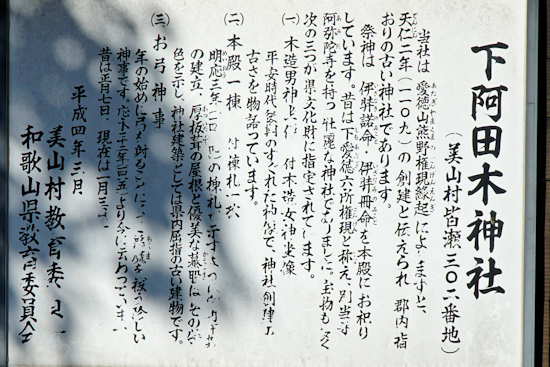 下阿田木神社
(美山村皆瀬三〇六番地)
当社は 愛徳山熊野権現縁起によりますと、
天仁二年(一一〇九)の創建と伝えられ 郡内 指
おりの古い神社であります。
祭神は 伊弉諾命 伊弉冊命を本殿にお祀り
しています。昔は下愛徳六所権現と称え、別当寺
阿弥陀寺を持つ壮麗な神社でありました。宝物も多く
次の三つが県文化財に指定されています。
(一) 木造男神坐像 付木造女神坐像
平安時代 神像で、神社創建の
古さを物語っています。
(二) 本殿一棟 付棟札一枚
明応三年 の棟札が示す
の建立で、厚板葺の屋根と優美な蟇股はその
色を示し、神社建築としては県内屈指の古い建物です。
(三) お弓神事
年の始めに弓を射ることに 珍しい
神事です。応永三十二年(一四二五)より今に伝わっています。
昔は正月七日、現在は一月三日
平成四年三月
美山村教育委
和歌山県教育委員会